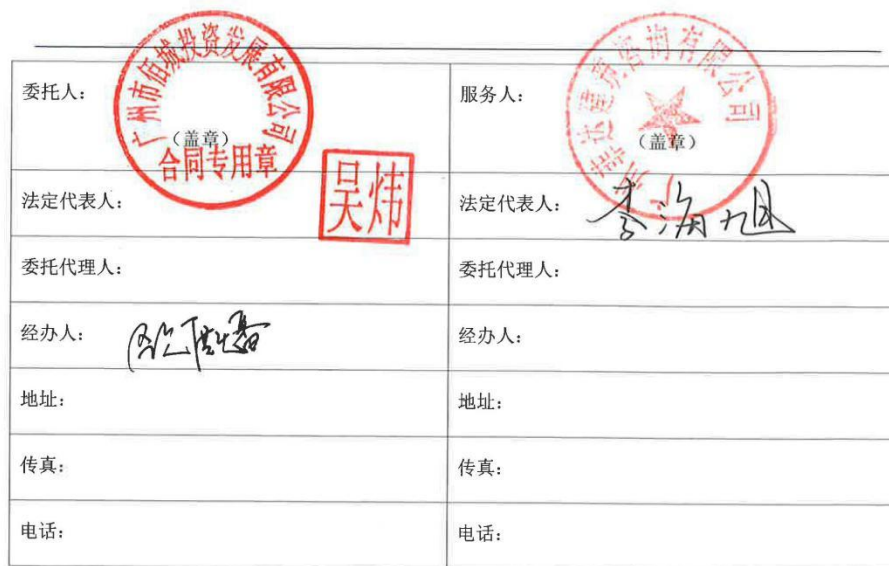 委托人：
广州市佰城投资发展有限公司
（盖章）
合同专用章
服务人：
达建筑咨询有限公司
（盖章）
法定代表人：
吴炜
法定代表人：
李海旭
委托代理人：
委托代理人：
经办人：
经办人：
地址：
地址：
传真：
传真：
电话：
电话：